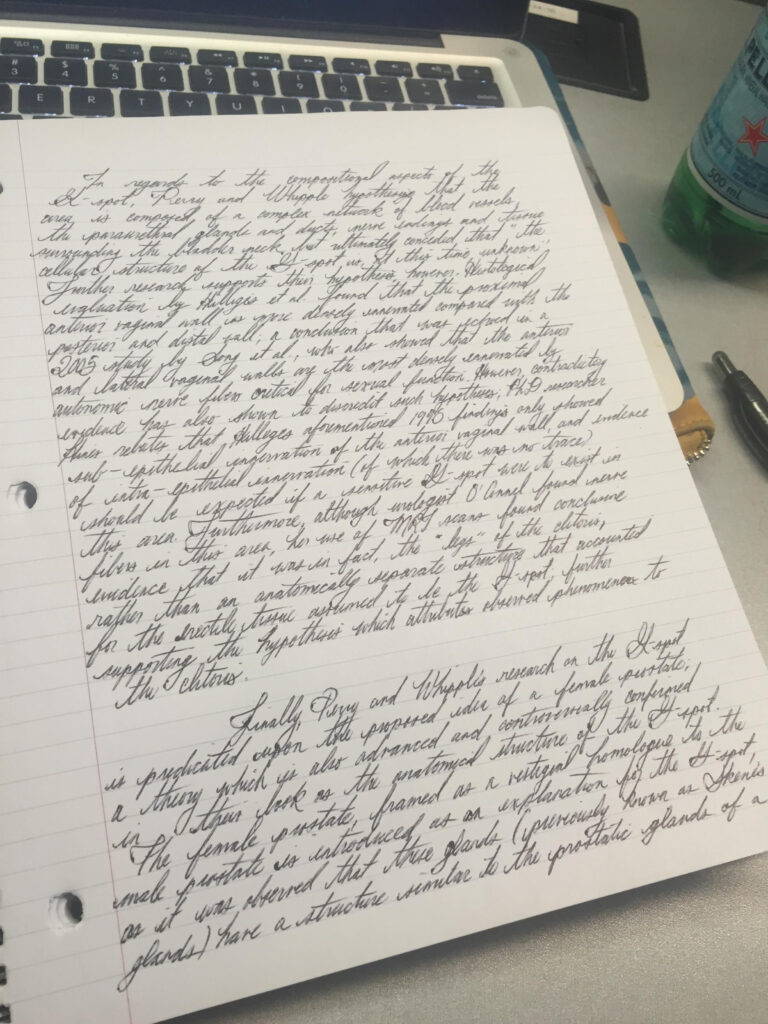 In regards to the compositional aspects of the
G-spot, Perry and Whipple hypothesize that the
area is composed of a complex network of blood vessels,
the paraurethral glands and ducts, nerve endings and tissue
surrounding the bladder neck, but ultimately conceded that "the
cellular structure of the G-spot is, at this time unknown".
Further research supports their hypothesis however. Histological
evaluation by Hilliges et al. found that the proximal
anterior vaginal wall is more densely innervated compared with the
posterior and distal wall, a conclusion that was echoed in a
2015 study by Song et al., who also showed that the anterior
and lateral vaginal walls are the most densely innervated by
autonomic nerve fibers critical for sexual function. However, contradictory
evidence has also shown to discredit such hypotheses; PhD researcher
Hines relates that Hilleges aforementioned 1995 findings only showed
sub-epithelial innervation of the anterior vaginal wall, and evidence
of intra-epithelial innervation (of which there was no trace)
should be expected if a sensitive G-spot were to exist in
this area. Furthermore, although urologist O'Connel found nerve
fibers in this area, her use of MRI scans found conclusive
evidence that it was in fact, the "legs" of the clitoris,
rather than an anatomically separate structure that accounted
for the erectile tissue assumed to be the G-spot, further
supporting the hypothesis which attributes observed phenomenon to
the clitoris.
Finally, Perry and Whipple's research on the G-spot
is predicated upon the proposed idea of a female prostate;
a theory which is also advanced and controversially confirmed
in their book as the anatomical structure of the G-spot.
The female prostate, framed as a vestigial homologue to the
male prostate is introduced as an explanation for the G-spot,
as it was observed that these glands (previously known as Skene's
glands) have a structure similar to the prostatic glands of a
# $ % ^ & * ( )
3 4 5 6 7 8 9 0
E R T Y U I
PELL
500 ml